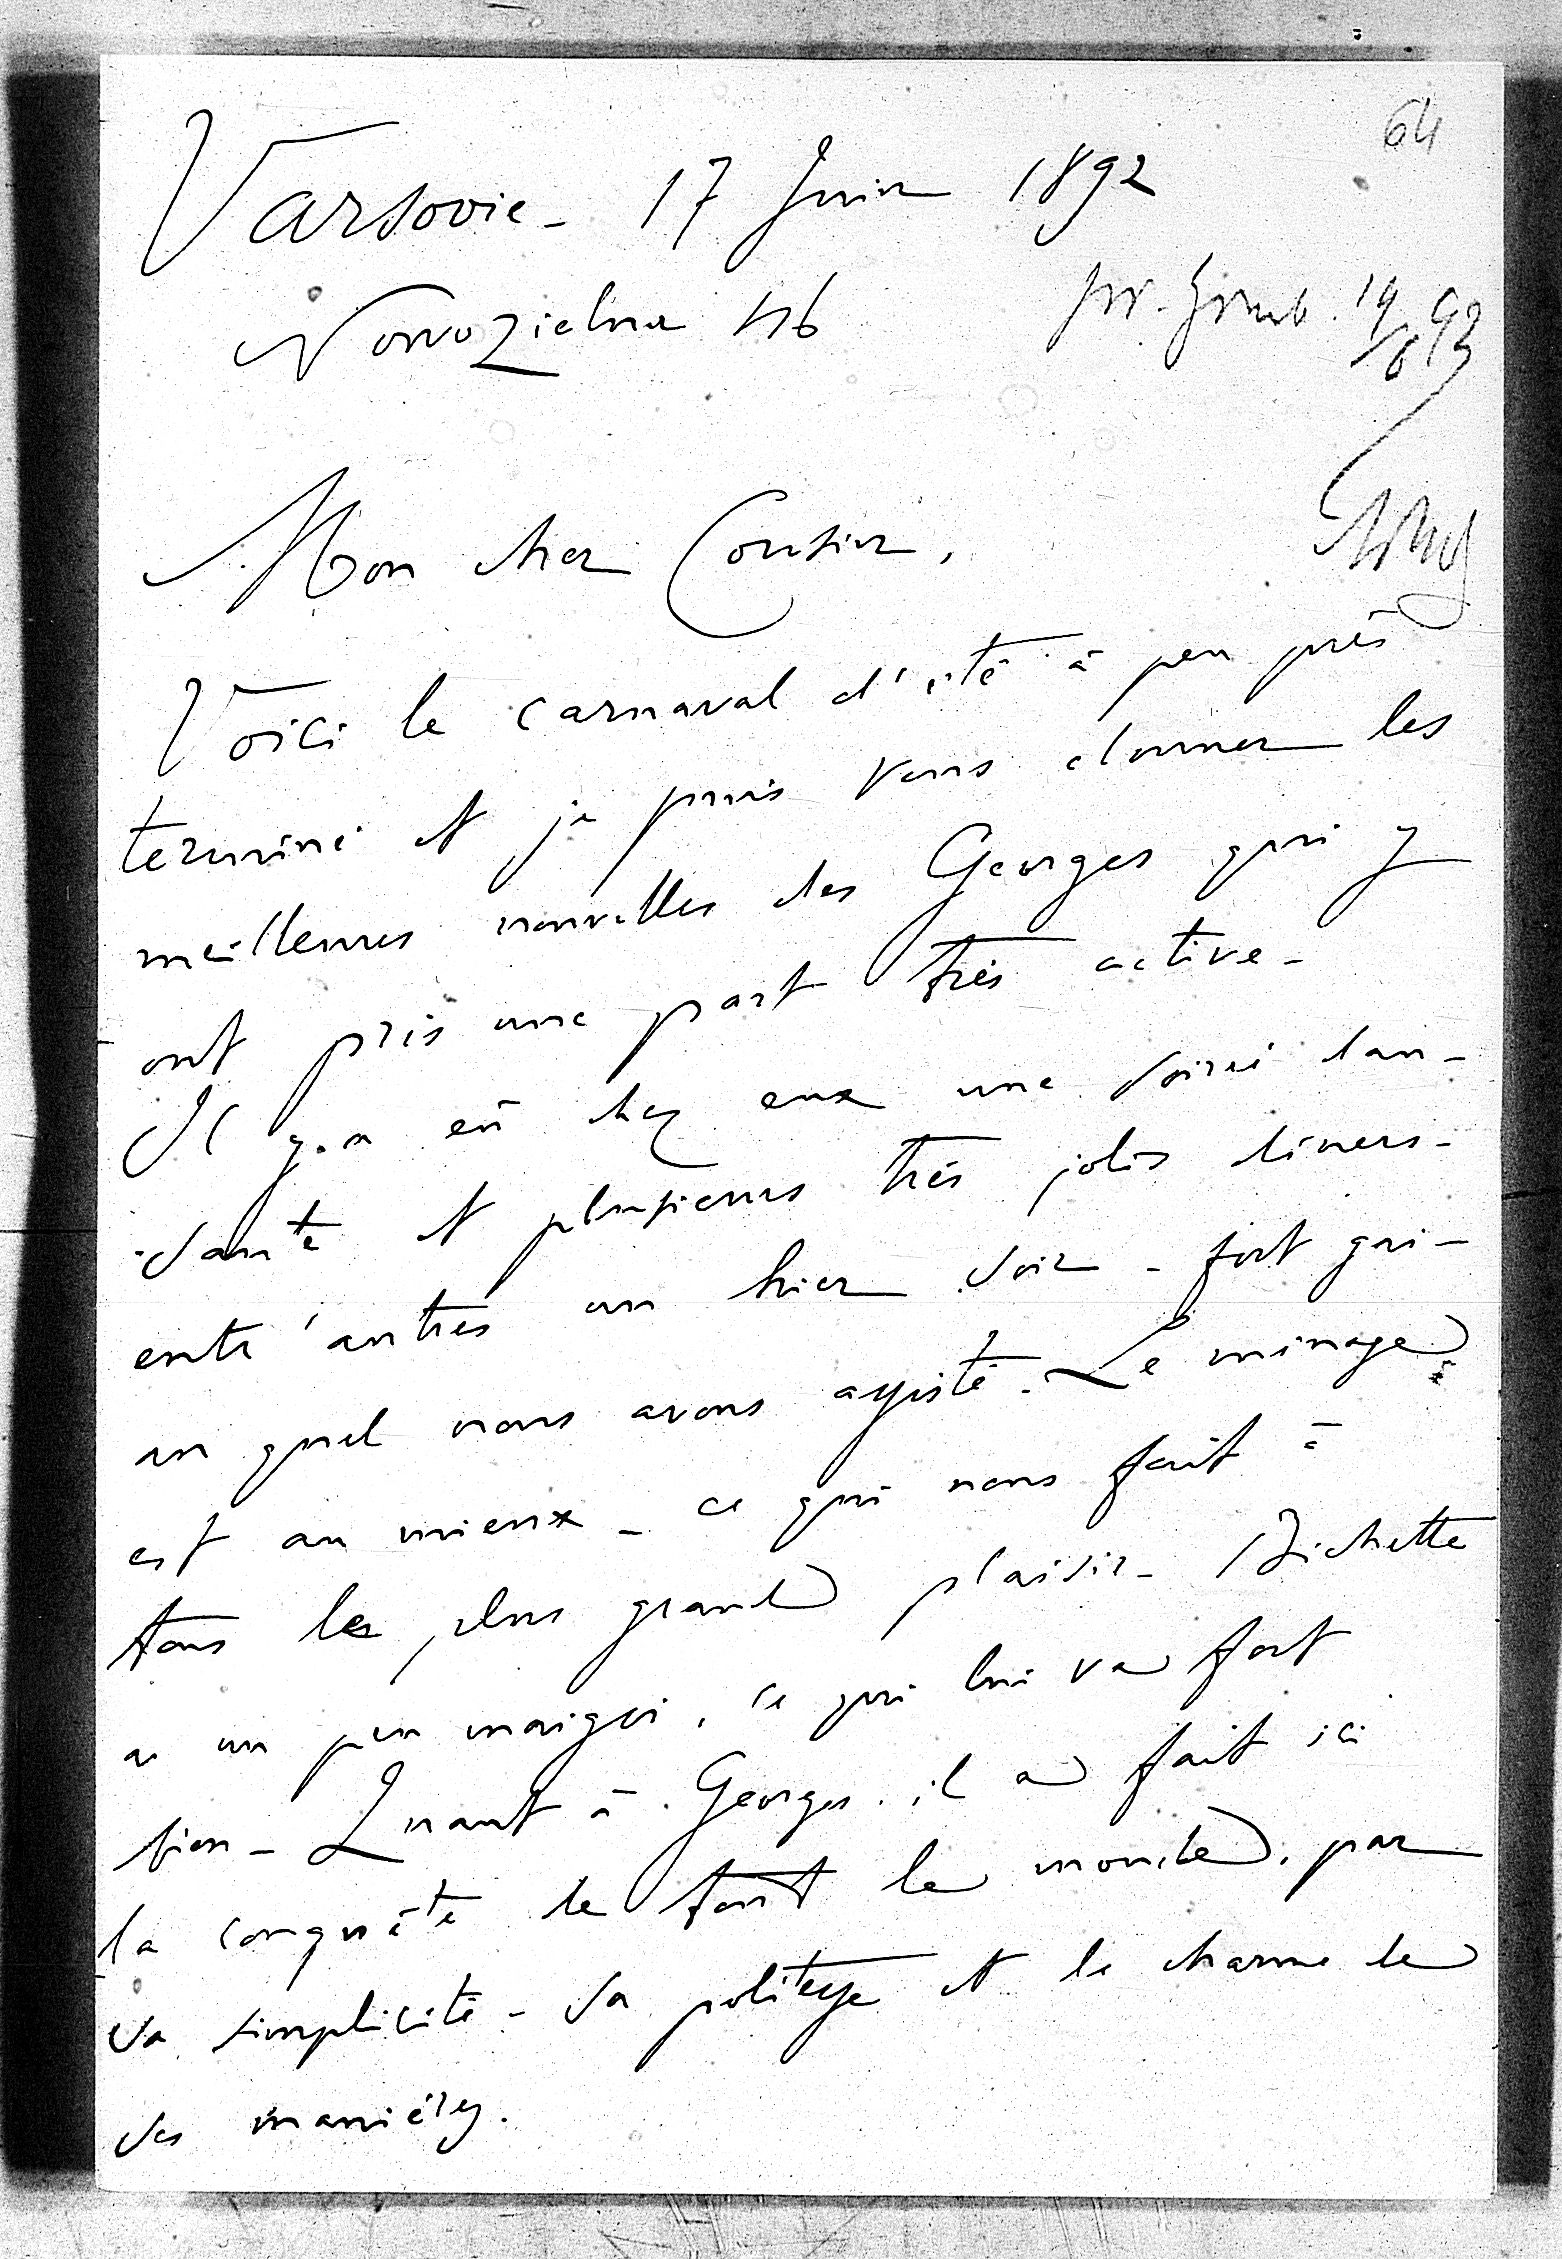 64
Varsovie - 17 Juin 1892
Nowozielna 46
Mon cher Cousin,
Voici le carnaval d'été à peu près
terminé et je puis vous donner les
meilleures nouvelles des Georges qui y
ont pris une part très active -
Il y a eû chez eux une soirée dan-
sante et plusieurs très jolis dîners -
entr'autres un hier soir - fort gai -
au quel nous avons assisté. Le ménage
est au mieux - ce qui nous fait à
tous le plus grand plaisir - Bichette
a un peu maigri, ce qui lui va fort
bien - Quant à Georges, il a fait ici
la conquête de tout le monde, par
sa simplicité - sa politesse et le charme de
ses manières.